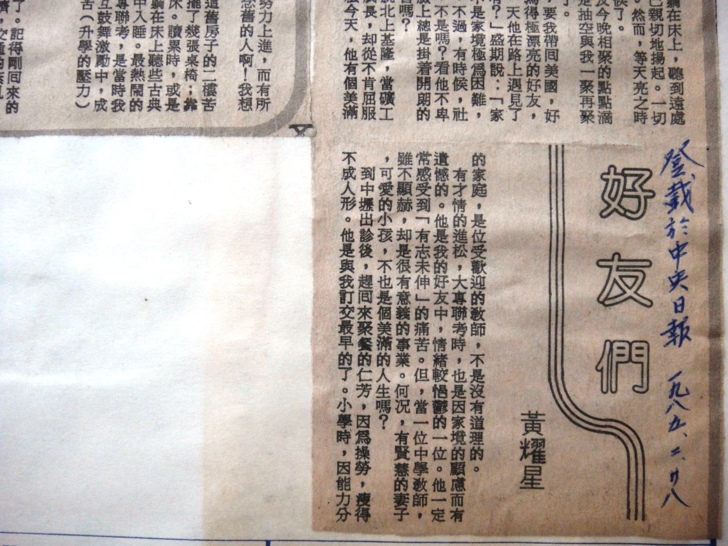 登載於中央日報 一九八五、二、廿八
好友們
黃耀星
躺在床上，聽到遠處
已親切地揚起。一切
。然而，等天亮之時
候了。
及今晚相聚的點點滴
是抽空與我一聚再聚
了。
要我帶回美國，好
寫得極漂亮的好友，
天他在路上遇見了
？」盛期說：「家
不是家境極為困難，
不過，有時候，社
不是嗎？看他不卑
上總是掛着開朗的
嗎？
說北上基隆，當礦工
長，却從不肯屈服
今天，他有個美滿
的家庭，是位受歡迎的教師，不是沒有道理的。
有才情的進松，大專聯考時，也是因家境的顧慮而有
遺憾的。他是我的好友中，情緒較悒鬱的一位。他一定
常感受到「有志未伸」的痛苦。但，當一位中學教師，
雖不顯赫，却是很有意義的事業。何況，有賢慧的妻子
，可愛的小孩，不也是個美滿的人生嗎？
到中壢出診後，趕回來聚餐的仁芳，因為操勞，瘦得
不成人形。他是與我訂交最早的了。小學時，因能力分
努力上進，而有所
念舊的人啊！我想
這舊房子的二樓苦
擺了幾張桌椅；靠
床。讀累時，或是
躺在床上聽些古典
中入睡。最熱鬧的
專聯考，是當時我
互鼓舞激勵中，成
苦（升學的壓力）
了。記得剛回來的